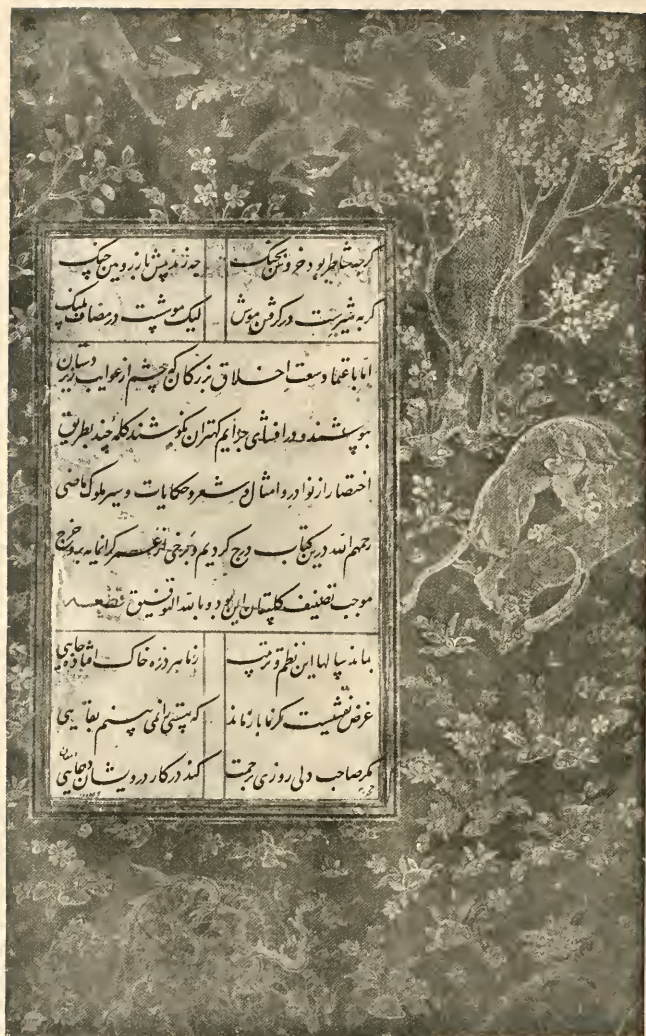 گرچه شاطر بود خروس بجنگ چه زند پیش باز رویین چنگ
گربه شیرست در گرفتن موش لیک موشست در مصاف پلنگ
اما باعتماد وسعت اخلاق بزرگان که چشم از عوایب زیردستان
بپوشند و در افشای جرایم کهتران نکوشند کلمه چند بطریق
اختصار از نوادر و امثال و شعر و حکایات و سیر ملوک ماضی
رحمهم الله درین کتاب درج کردیم و برخی از عمر گرانمایه برو خرج
موجب تصنیف گلستان این بود و بالله التوفیق قطعه
بماند سالها این نظم و ترتیب ز ما هر ذره خاک افتاده جایی
غرض نقشیست کز ما باز ماند که هستی را نمی بینم بقایی
مگر صاحب دلی روزی برحمت کند در کار درویشان دعایی